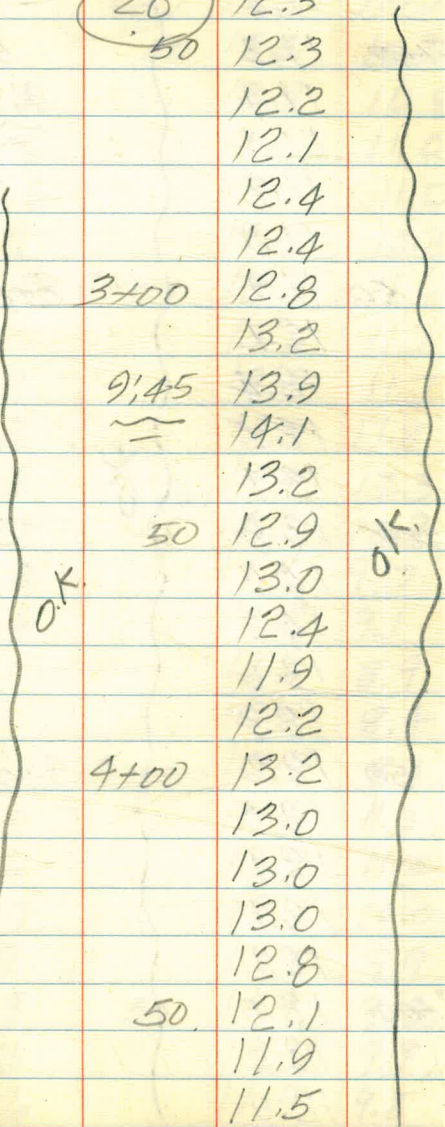 20 12.3
50 12.3
12.2
12.1
12.4
12.4
3+00 12.8
13.2
9:45 13.9
14.1
13.2
50 12.9
13.0
O.K. 12.4 O.K.
11.9
12.2
4+00 13.2
13.0
13.0
13.0
12.8
50. 12.1
11.9
11.5